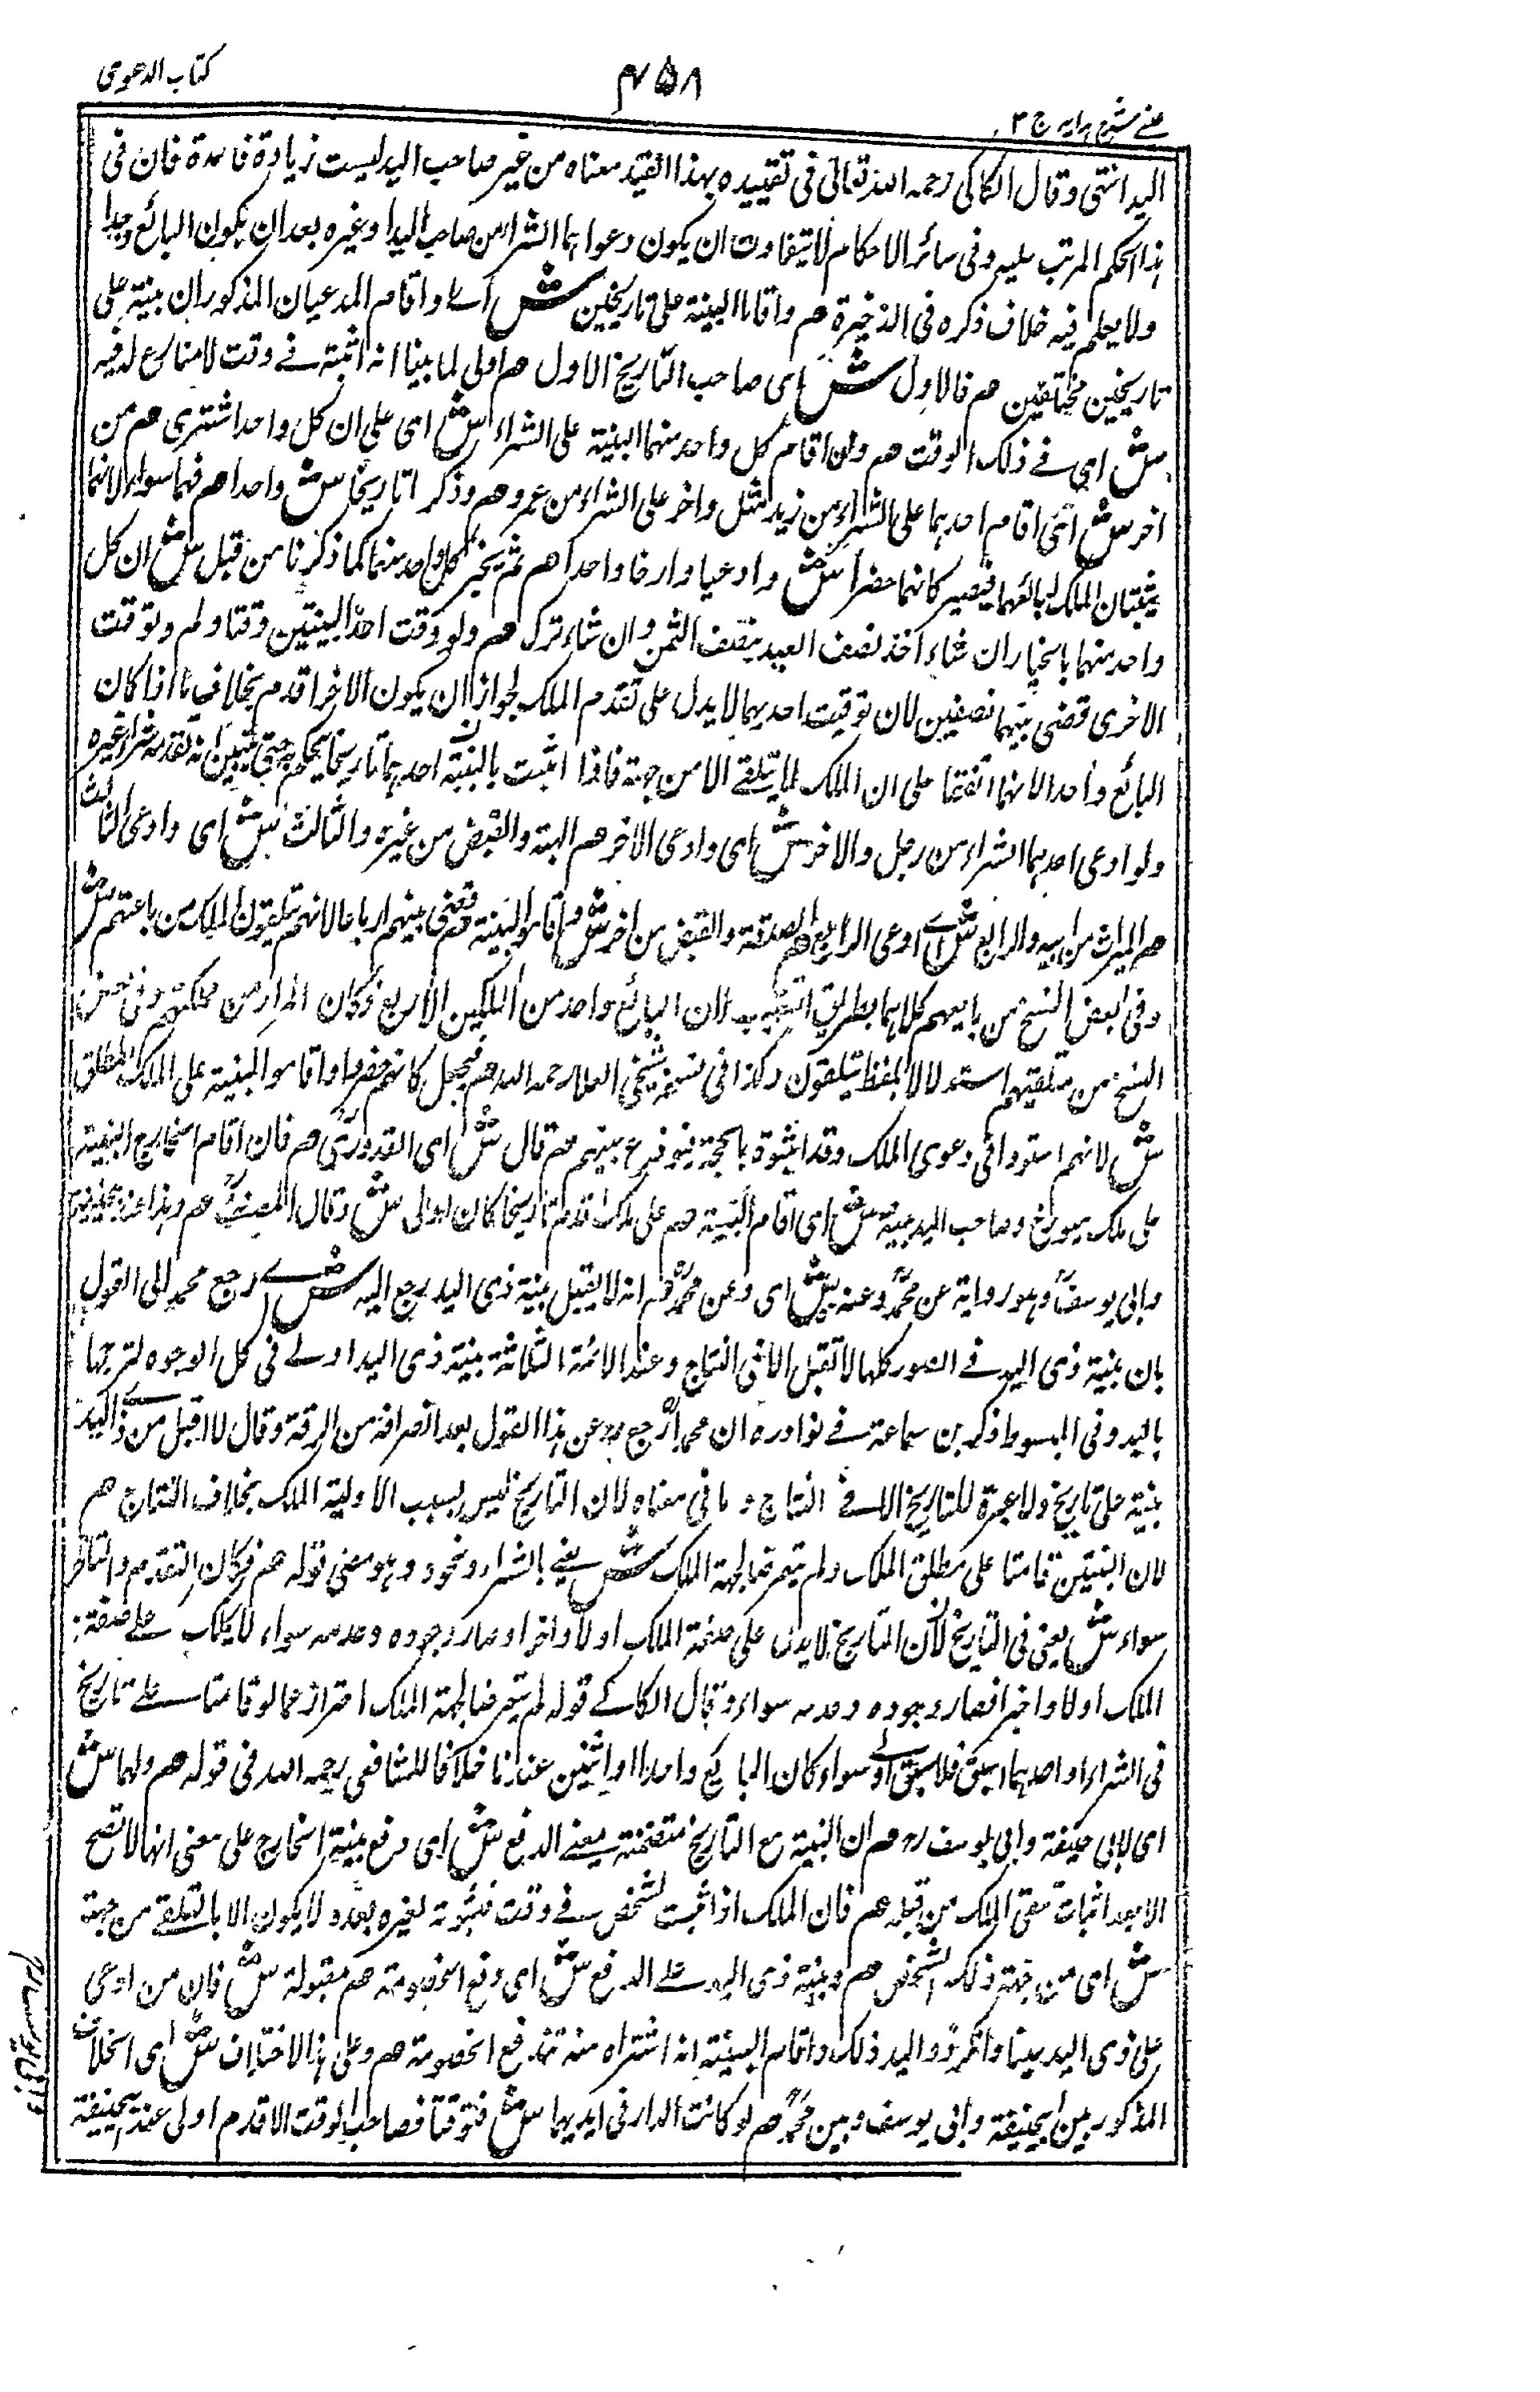 كتاب الدعوى
۴۵۸
عيني شرح هدايه ج ۳
اليد انتهى وقال الكاكي رحمه الله تعالى في تقييده بهذا القيد معناه من غير صاحب اليد ليست زيادة فائدة فان في
هذا الحكم المرتب عليه وفي سائر الاحكام لا يتفاوت ان يكون دعواهما الشراء من صاحب اليد او غيره بعد ان يكون البائع واحدا
ولا يعلم فيه خلاف ذكره في الذخيرة هم واقاما البينة على تاريخين ش اے واقام المدعيان المذكوران بينة على
تاريخين مختلفين هم فالاول ش اى صاحب التاريخ الاول هم اولى لما بينا انه اثبته في وقت لا منازع له فيه
ش اى في ذلك الوقت هم وان اقام كل واحد منهما البينة على الشراء ش اى على ان كل واحد اشترى هم من
اخر ش اى اقام احدهما على الشراء من زيد مثلا واخر على الشراء من عمرو هم وذكرا تاريخا ش واحدا هم فهما سواء لانهما
يثبتان الملك لبائعهما فيصير كانهما حضرا ش وادعيا وارخا واحدا هم ثم يخير كل واحد منهما كما ذكرنا من قبل ش ان كل
واحد منهما بالخيار ان شاء اخذ نصف العبد بنصف الثمن وان شاء ترك هم ولو وقت احد البينتين وقتا ولم توقت
الاخرى قضى بينهما نصفين لان توقيت احديهما لا يدل على تقدم الملك لجواز ان يكون الاخر اقدم بخلاف ما اذا كان
البائع واحدا لانهما اتفقا على ان الملك لا يتلقى الا من جهته فاذا اثبت بالبينة احدهما تاريخا يحكم به حتى يتبين انه تقدمه شراء غيره
ولو ادعى احدهما الشراء من رجل والاخر ش اى وادعى الاخر هم الهبة والقبض من غيره والثالث ش اى وادعى الثالث
هم الميراث من ابيه والرابع ش اے ادعى الرابع هم الصدقة والقبض من اخر ش واقاموا البينة هم قضى بينهم ارباعا لانهم يتلقون الملك من باعتهم ش
وفي بعض النسخ من بايعهم كلاهما بطريق التغليب لان البائع واحد من الملكين الاربع فكان المراد من مملكهم وفي بعض
النسخ من متلقيهم استدلالا بلفظ يتلقون وكذا في نسخة شيخي العلا رحمه الله هم فيجعل كانهم حضروا واقاموا البينة على الملك المطلق
ش لانهم استووا في دعوى الملك وقد اثبتوه بالحجة فيوزع بينهم هم قال ش اى القدورى هم فان اقام الخارج البينة
على ملك مورخ وصاحب اليد بينة ش اى اقام البينة هم على ملك اقدم تاريخا كان اولى ش وقال المصنف هم وهذا عند ابيحنيفة
وابى يوسف وهو رواية عن محمد وعنه ش اى وعن محمد هم انه لا يقبل بينة ذى اليد رجع اليه ش اے رجع محمد الى القول
بان بينة ذى اليد في الصور كلها لا تقبل الا في النتاج وعند الائمة الثلاثة بينة ذى اليد اولى في كل الوجوه لترجحها
باليد وفي المبسوط ذكر بن سماعة في نوادره ان محمدا رجع عن هذا القول بعد انصرافه من الرقة وقال لا اقبل من ذى اليد
بينة على تاريخ ولا عبرة للتاريخ الا في النتاج وما في معناه لان التاريخ ليس بسبب الاولية الملك بخلاف النتاج هم
لان البينتين قامتا على مطلق الملك ولم يتعرضا لجهة الملك ش يعني بالشراء ونحوه وهو معنى قوله هم فكان التقدم والتاخر
سواء ش يعني في التاريخ لان التاريخ لا يدل على صفة الملك اولا واخرا وصار وجوده وعدمه سواء لا يملك على صفة
الملك اولا واخيرا فصار وجوده وعدمه سواء وقال الكاكے قوله لم يتعرضا لجهة الملك احتراز عما لو قامتا على تاريخ
في الشراء او احدهما اسبق فلاسبق اولى سواء كان البايع واحدا او اثنين عندنا خلافا للشافعي رحمه الله في قوله هم ولهما ش
اى لابى حنيفة وابى يوسف ره هم ان البينة مع التاريخ متضمنة معنى الدفع ش اى دفع بينة الخارج على معنى انها لا تصح
الا بعد اثبات تلقى الملك من قبله هم فان الملك اذا ثبت لشخص في وقت فثبوته لغيره بعده لا يكون الا بالتلقى من جهته
ش اى من جهة ذلك الشخص هم وبينة ذى اليد على الدفع ش اى دفع الخصومة هم مقبولة ش فان من ادعى
على ذى اليد عينا وانكر ذو اليد ذلك واقام البينة انه اشتراه منه تندفع الخصومة هم وعلى هذا الاختلاف ش اى الخلاف
المذكور بين ابيحنيفة وابى يوسف وبين محمد هم لو كانت الدار في ايديهما ش فتوقتا فصاحب الوقت الاقدم اولى عند ابيحنيفة